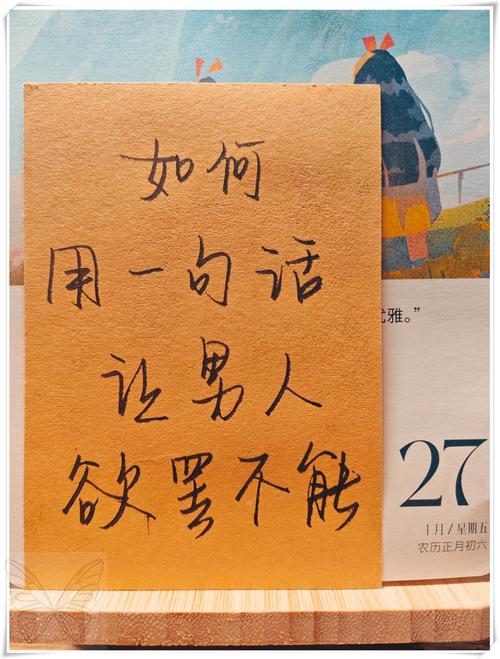 如何
用一句话
让男人
欲罢不能
优雅。”
27
一月/星期五
农历正月初六